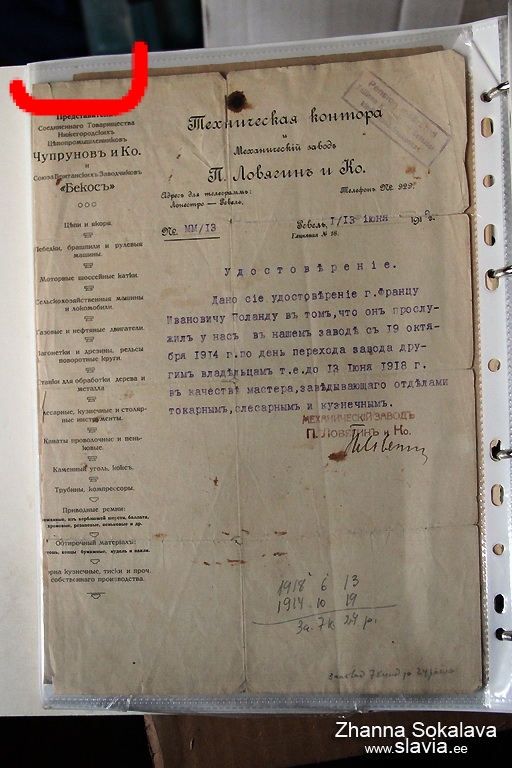 Представители
Соединеннаго Товарищества
Нижегородскихъ
Цѣпопромышленниковъ
Чупруновъ и Ко.
и
Союза Британскихъ Заводчиковъ
«Бекосъ»
Цѣпи и якоря.
Лебедки, брашпили и рулевыя
машины.
Моторные шоссейные катки.
Сельскохозяйственныя машины
и локомобили.
Газовые и нефтяные двигатели.
Вагонетки и дрезины, рельсы
поворотные круги.
Станки для обработки дерева и
металла
Слесарные, кузнечные и столяр-
ные инструменты.
Канаты проволочные и пень-
ковые.
Каменный уголь, коксъ.
Трубины, компрессоры.
Приводные ремни:
кожаные, изъ верблюжей шерсти, баллата,
хромовые, резиновые, пеньковые и др.
Обтирочный матеріалъ:
концы бумажные, кудель и пакля.
Горна кузнечные, тиски и проч.
собственнаго производства.
Техническая контора
и
Механическій заводъ
П. Ловягинъ и Ко.
Адресъ для телеграммъ:
Лонестро — Ревель.
Телефонъ № 929.
№ МИ/13
Ревель, 1/13 іюня 1918.
Глиняная № 16.
Удостовѣреніе.
Дано сіе удостовѣреніе г. Францу
Ивановичу Поланду въ томъ, что онъ прослу-
жилъ у насъ въ нашемъ заводѣ съ 19 октя-
бря 1914 г. по день перехода завода дру-
гимъ владѣльцамъ т.е. до 13 Іюня 1918 г.
въ качествѣ мастера, завѣдывающаго отдѣлами
токарнымъ, слесарнымъ и кузнечнымъ.
МЕХАНИЧЕСКІЙ ЗАВОДЪ
П. Ловягинъ и Ко.
1918 6 13
1914 10 19
3а. 7к. 24 р.
Zhanna Sokalava
www.slavia.ee